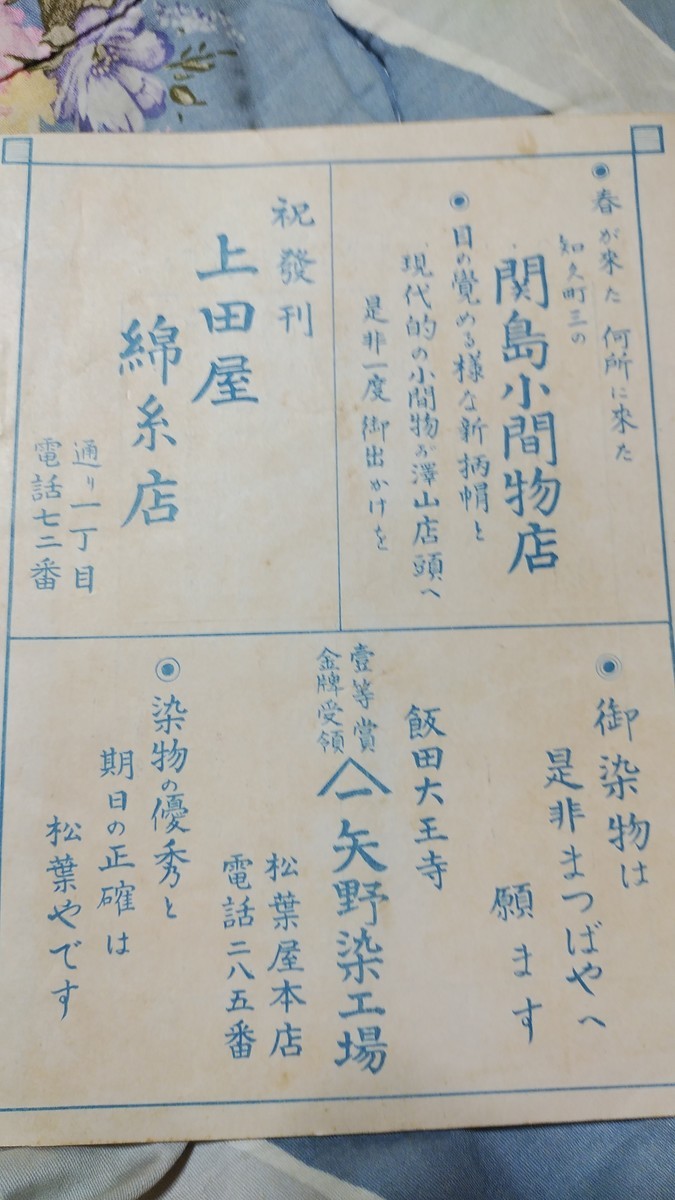 ◉春が來た何所に來た
知久町三の
関島小間物店
◉目の覚める様な新柄帽と
現代的の小間物が澤山店頭へ
是非一度御出かけを
祝發刊
上田屋
綿糸店
通り一丁目
電話七二番
◉御染物は
是非まつばやへ
願ます
飯田大王寺
壹等賞
金牌受領
矢野染工場
松葉屋本店
電話二八五番
◉染物の優秀と
期日の正確は
松葉やです